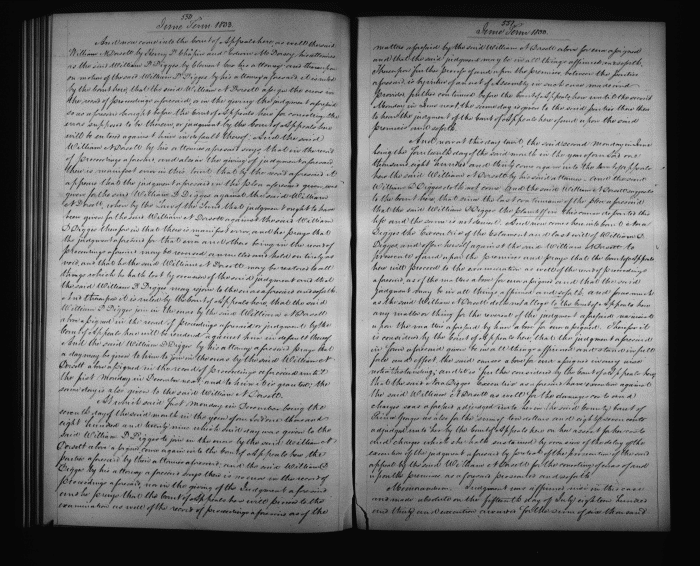 530
June Term 1833.
And now come into the Court of Appeals here as well the said
William N Dorsett by Henry
as the said William D Digges by Clement
on motion of the said William D Digges by his attorney aforesaid It is ruled
by the Court here that the said William N Dorsett assign the errors in
the record of proceedings aforesaid, or in the giving the judgment aforesaid
so as aforesaid brought before the Court of Appeals here for correcting the
errors supposed to be therein, or judgment by the Court of Appeals here
will be entered against him in default thereof. And the said
William N Dorsett by his attorney aforesaid says that in the record
of proceedings aforesaid and also in the giving of judgment aforesaid
there is manifest error in this, to wit, that by the record aforesaid it
appears that the judgment aforesaid on the plea aforesaid given, was
given for the said William D Digges against the said William
N Dorsett, when by the Law of the Land that judgment ought to have
been given for the said William N Dorsett against the said William
D Digges therefor in that there is manifest error, and he prays that
the judgment aforesaid for that error and others being in the record of
proceedings aforesaid may be reversed, annulled and held entirely as
void, and that he the said William N Dorsett may be restored to all
things which he hath lost by occasion of the said judgment and that
the said William D Digges may rejoin to the errors aforesaid and so forth
And thereupon it is ruled by the Court of Appeals here, that the said
William D Digges join in the errors by the said William N Dorsett
above assigned in the record of proceedings aforesaid or judgment by the
Court of Appeals here will be rendered against him in default thereof
And the said William D Digges by his attorney aforesaid prays that
a day may be given to him to join in the errors by the said William N
Dorsett above assigned in the record of proceedings aforesaid until
the first Monday in December next, and to him it is granted, the
same day is also given to the said William N Dorsett.
At which said first Monday in December being the
seventh day of the said month in the year of our Lord one thousand
eight hundred and twenty nine which said day was given to the
said William D. Digges to join in the errors by the said William N.
Dorsett above assigned come again into the Court of Appeals here, the
parties aforesaid by their attornies aforesaid, and the said William D.
Digges by his attorney aforesaid says there is no error in the record of
proceedings aforesaid, nor in the giving of the Judgment aforesaid
and he prays that the Court of Appeals here will proceed to the
examination as well of the record of proceedings aforesaid as of the
531
June Term 1830.
matters aforesaid by the said William N Dorsett above for error assigned
and that the said judgment may be in all things affirmed and so forth.
Thereupon further proceedings upon the premises between the parties
aforesaid is by virtue of an act of Assembly in such cases made and
provided further continued before the Court of Appeals here until the second
Monday in June next, the same day is given to the said parties then there
to hear the judgment of the Court of Appeals here of and upon the said
premises and so forth.
And now at this day to wit, the said second Monday in June
being the fourteenth day of the said month in the year of our Lord one
thousand eight hundred and thirty come again into the Court of Appeals
here the said William N Dorsett by his said attorney, and the said
William D Digges doth not come. And the said William N Dorsett suggests
to the Court here, that since the last continuance of the plea aforesaid
that the said William D Digges the plaintiff in this cause departed this
life and the same is not denied. And now comes here into Court Ana
Digges the Executrix of the testament and last will of William D.
Digges, and offers herself against the said William N Dorsett to
prosecute of and upon the premises and prays that the Court of Appeals
here will proceed to the examination as well of the record of proceedings
aforesaid, as of the matters above for error assigned and that the said
judgment may be in all things affirmed and so forth, and forasmuch
as the said William N Dorsett doth not alledge to the Court of Appeals here
any matter or thing for the reversal of the judgment aforesaid
upon the matters aforesaid by him above for error assigned. Therefore it
is considered by the Court of Appeals here, that the judgment aforesaid
in form aforesaid given be in all things affirmed and stand in full
force and effect the said causes above for error assigned in any wise
notwithstanding, and it is further considered by the Court of Appeals here,
that the said Ana Digges Executrix as aforesaid have execution against
the said William N Dorsett as well for the damages costs and
charges so as aforesaid adjudged unto her in the said County Court of
Prince Georges as also for the sum of
adjudged unto her by the Court of Appeals here on her assent for her costs
and charges which she hath sustained by occasion of the delay of the
execution of the judgment aforesaid by pretext of the prosecution of the said
appeal by the said William N Dorsett for the correcting of errors of and
upon the premises as aforesaid prosecuted and so forth
Memorandum. Judgment was affirmed nisi in this case
and made absolute on the fifteenth day of July eighteen hundred
and thirty and execution for the sum of six thousand